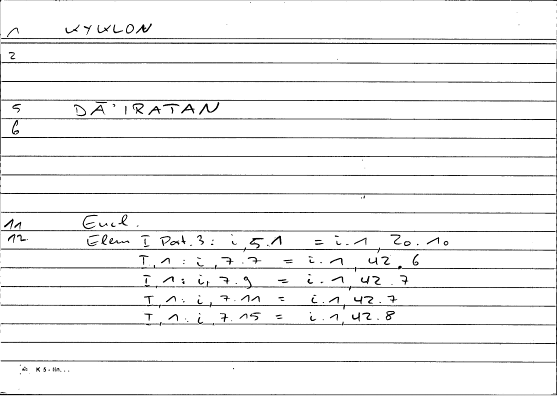 1 KYKLON
2
5 DĀ'IRATAN
6
11 Eucl.
12. Elem I Post. 3: i, 5.1 = i.1, 20.10
I, 1: i, 7.7 = i.1, 42.6
I 1: i, 7.9 = i.1, 42.7
I, 1: i, 7.11 = i.1, 42.7
I, 1: i, 7.15 = i.1, 42.8